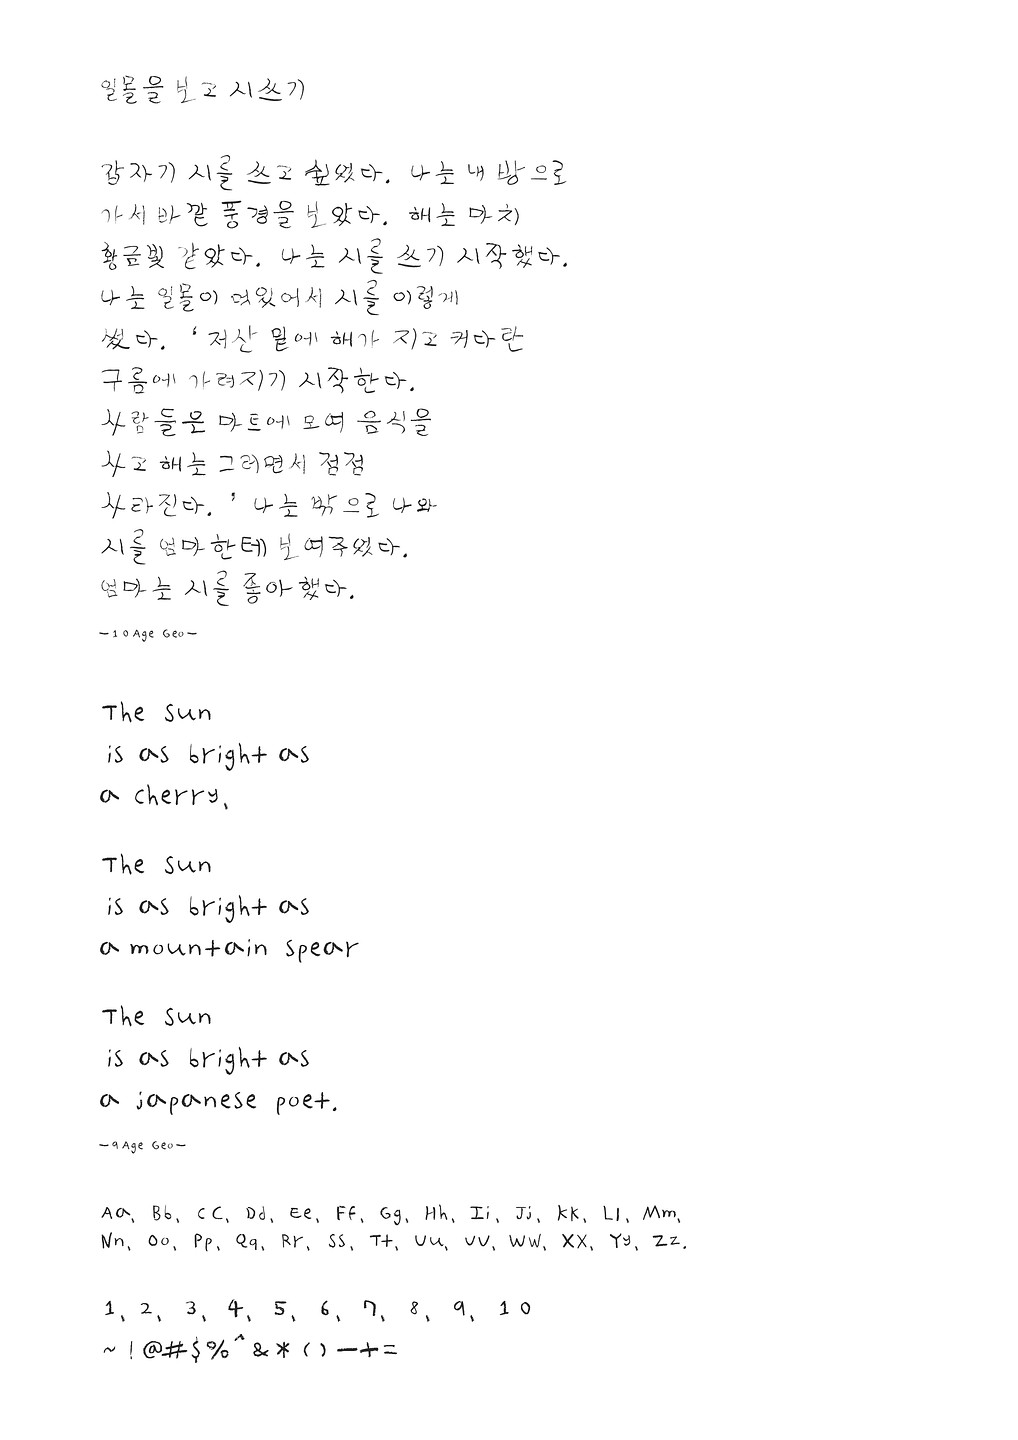 일몰을 보고 시쓰기
갑자기 시를 쓰고 싶었다. 나는 내 방으로
가서 바깥 풍경을 보았다. 해는 마치
황금빛 같았다. 나는 시를 쓰기 시작했다.
나는 일몰이 멋있어서 시를 이렇게
썼다. ‘저산 밑에 해가 지고 커다란
구름에 가려지기 시작한다.
사람들은 마트에 모여 음식을
사고 해는 그러면서 점점
사라진다.’ 나는 밖으로 나와
시를 엄마한테 보여주었다.
엄마는 시를 좋아했다.
-10Age Geo-
The Sun
is as bright as
a cherry,
The Sun
is as bright as
a mountain spear
The Sun
is as bright as
a japanese poet.
-9Age Geo-
Aa, Bb, CC, Dd, Ee, Ff, Gg, Hh, Ii, Jj, KK, Ll, Mm,
Nn, Oo, Pp, Qq, Rr, SS, Tt, Uu, VV, WW, XX, Yy, Zz.
1, 2, 3, 4, 5, 6, 7, 8, 9, 10
~!@#$%^&*()-+=